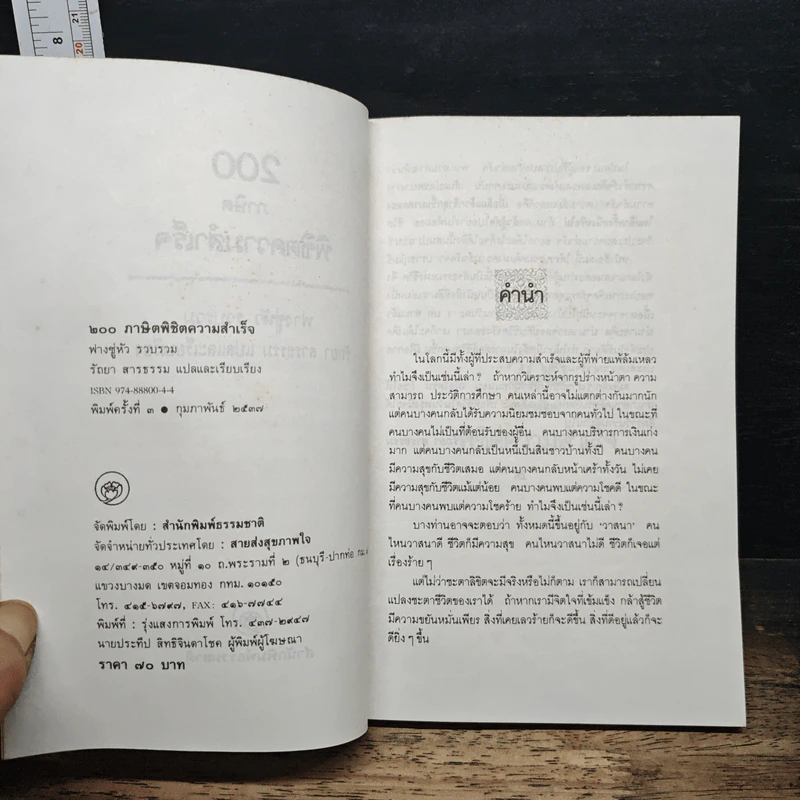 8
20
21
๒๐๐ ภาษิตพิชิตความสำเร็จ
ฟางซู่หัว รวบรวม
รัถยา สารธรรม แปลและเรียบเรียง
ISBN 974-88800-4-4
พิมพ์ครั้งที่ ๓ ● กุมภาพันธ์ ๒๕๓๗
จัดพิมพ์โดย : สำนักพิมพ์ธรรมชาติ
จัดจำหน่ายทั่วประเทศโดย : สายส่งสุขภาพใจ
๑๔/๓๔๙-๓๕๐ หมู่ที่ ๑๐ ถ.พระรามที่ ๒ (ธนบุรี-ปากท่อ กม.
แขวงบางมด เขตจอมทอง กทม. ๑๐๑๕๐
โทร. ๔๑๕-๖๗๙๗, FAX: ๔๑๖-๗๗๔๔
พิมพ์ที่ : รุ่งแสงการพิมพ์ โทร. ๔๓๗-๒๙๔๗
นายประทีป สิทธิจินดาโชค ผู้พิมพ์ผู้โฆษณา
ราคา ๗๐ บาท
คำนำ
ในโลกนี้มีทั้งผู้ที่ประสบความสำเร็จและผู้ที่พ่ายแพ้ล้มเหลว
ทำไมจึงเป็นเช่นนี้เล่า ? ถ้าหากวิเคราะห์จากรูปร่างหน้าตา ความ
สามารถ ประวัติการศึกษา คนเหล่านี้อาจไม่แตกต่างกันมากนัก
แต่คนบางคนกลับได้รับความนิยมชมชอบจากคนทั่วไป ในขณะที่
คนบางคนไม่เป็นที่ต้อนรับของผู้อื่น คนบางคนบริหารการเงินเก่ง
มาก แต่คนบางคนกลับเป็นหนี้เป็นสินชาวบ้านทั้งปี คนบางคน
มีความสุขกับชีวิตเสมอ แต่คนบางคนกลับหน้าเศร้าทั้งวัน ไม่เคย
มีความสุขกับชีวิตแม้แต่น้อย คนบางคนพบแต่ความโชคดี ในขณะ
ที่คนบางคนพบแต่ความโชคร้าย ทำไมจึงเป็นเช่นนี้เล่า ?
บางท่านอาจจะตอบว่า ทั้งหมดนี้ขึ้นอยู่กับ 'วาสนา' คน
ไหนวาสนาดี ชีวิตก็มีความสุข คนไหนวาสนาไม่ดี ชีวิตก็เจอแต่
เรื่องร้าย ๆ
แต่ไม่ว่าชะตาลิขิตจะมีจริงหรือไม่ก็ตาม เราก็สามารถเปลี่ยน
แปลงชะตาชีวิตของเราได้ ถ้าหากเรามีจิตใจที่เข้มแข็ง กล้าสู้ชีวิต
มีความขยันหมั่นเพียร สิ่งที่เคยเลวร้ายก็จะดีขึ้น สิ่งที่ดีอยู่แล้วก็จะ
ดียิ่ง ๆ ขึ้น